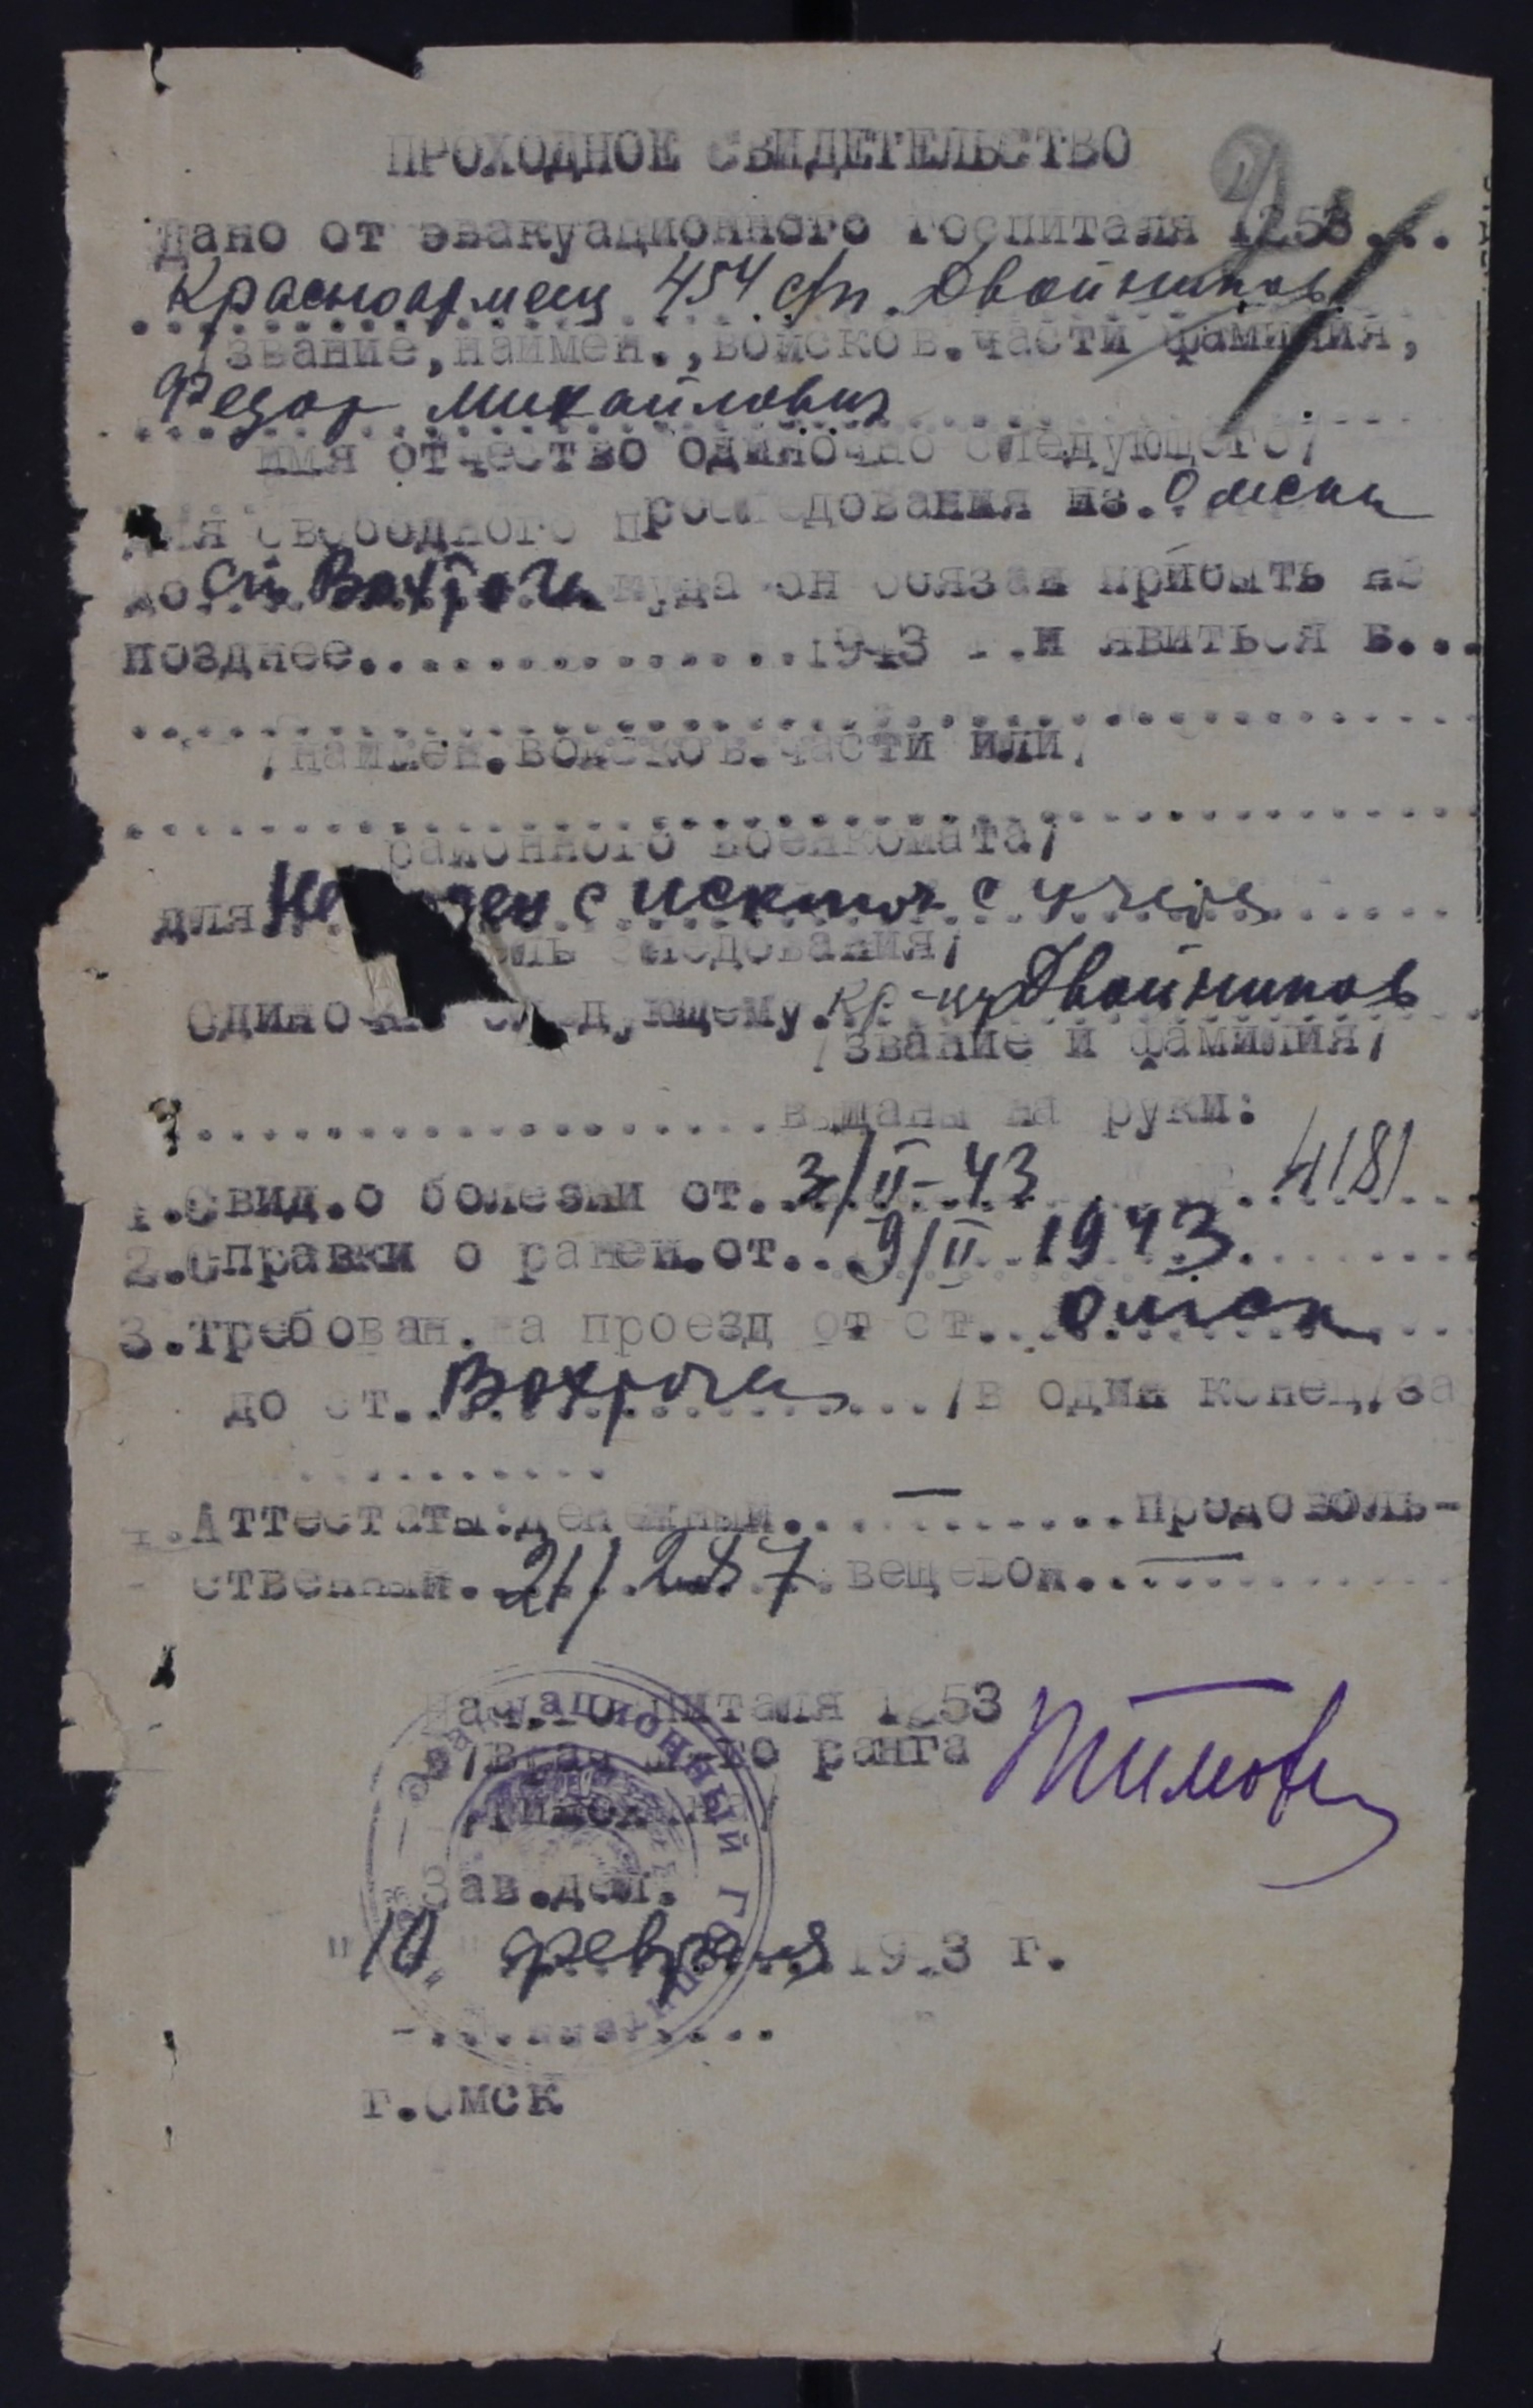 2
ПРОХОДНОЕ СВИДЕТЕЛЬСТВО
Дано от эвакуационного госпиталя 1253...
Красноармеец 454 с/п. Двойников
/звание, наимен., войсков. части фамилия,
Федор Михайлович
имя отчество одиночно следующего/
Для свободного проследования из. Омска
до ст. Вохтога куда он обязан прибыть не
позднее...............1943 г. и явиться в...
/наимен. войсков. части или/
районного военкомата/
для с исключ с учета
цель следования/
Одиночно следующему. кр-цу Двойников
/звание и фамилия/
..................... выданы на руки:
1. Свид. о болезни от. 3/II-43 4181
2. Справки о ранен. от... 9/II 1943
3. Требован. на проезд от ст... Омск
до ст. Вохтога /в один конец/за
4. Аттестаты: денежный.. — ....продоволь-
ственный. 21/287 вещевой.. —
Нач. госпиталя 1253
в/врач го ранга
Зав. дел.
"10" февраля 1943 г.
г. Омск
Эвакуационный Госпиталь